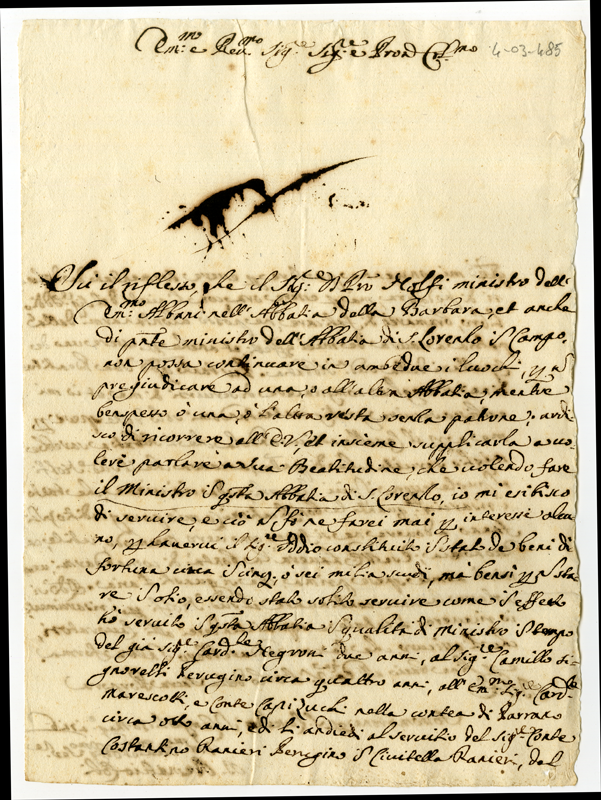 Em.mo e Rev.mo Sig.re Sig.re e Pron Col.mo 4-03-485
Sù il riflesso, che il Sig.e D Pro Nolfi ministro dell
Em.mo Albani nell'Abbatia della Barbara, et anche
di pnte ministro dell'Abbatia di S. Lorenzo i Campo,
non possa continuare in ambedue i luochi, p n
pregiudicare ad una, o all'altra Abbatia, mentre
benspesso ò una, ò l'altra resta senza patrone; ardi-
sco di ricorrere all'E.V., et insieme supplicarla a vo-
lere parlare a Sua Beatitudine, che volendo fare
il Ministro p qsta Abbatia di S. Lorenzo, io mi esibisco
di servire, e ciò n lo farei mai p interesse alcu-
no, p havervi Iddio constituito stato de beni di
fortuna circa cinq, ò sei milia scudi, mà bensi p n sta-
re otio, essendo stato solito servire come effetto
hò servito qsta Abbatia qualità di ministro tempo
del già Sig.e Card.le Negroni due anni, al Sig.e Camillo Si-
gnorelli Perugino circa quattro anni, all'Em.mo Sig.e Card.le
Marescotti, e Conte Capizucchi nella contea di Parrano
circa otto anni, e di li andiedi al servitio del Sig.e Conte
Costantino Ranieri Perugino Civitella Ranieri, dal